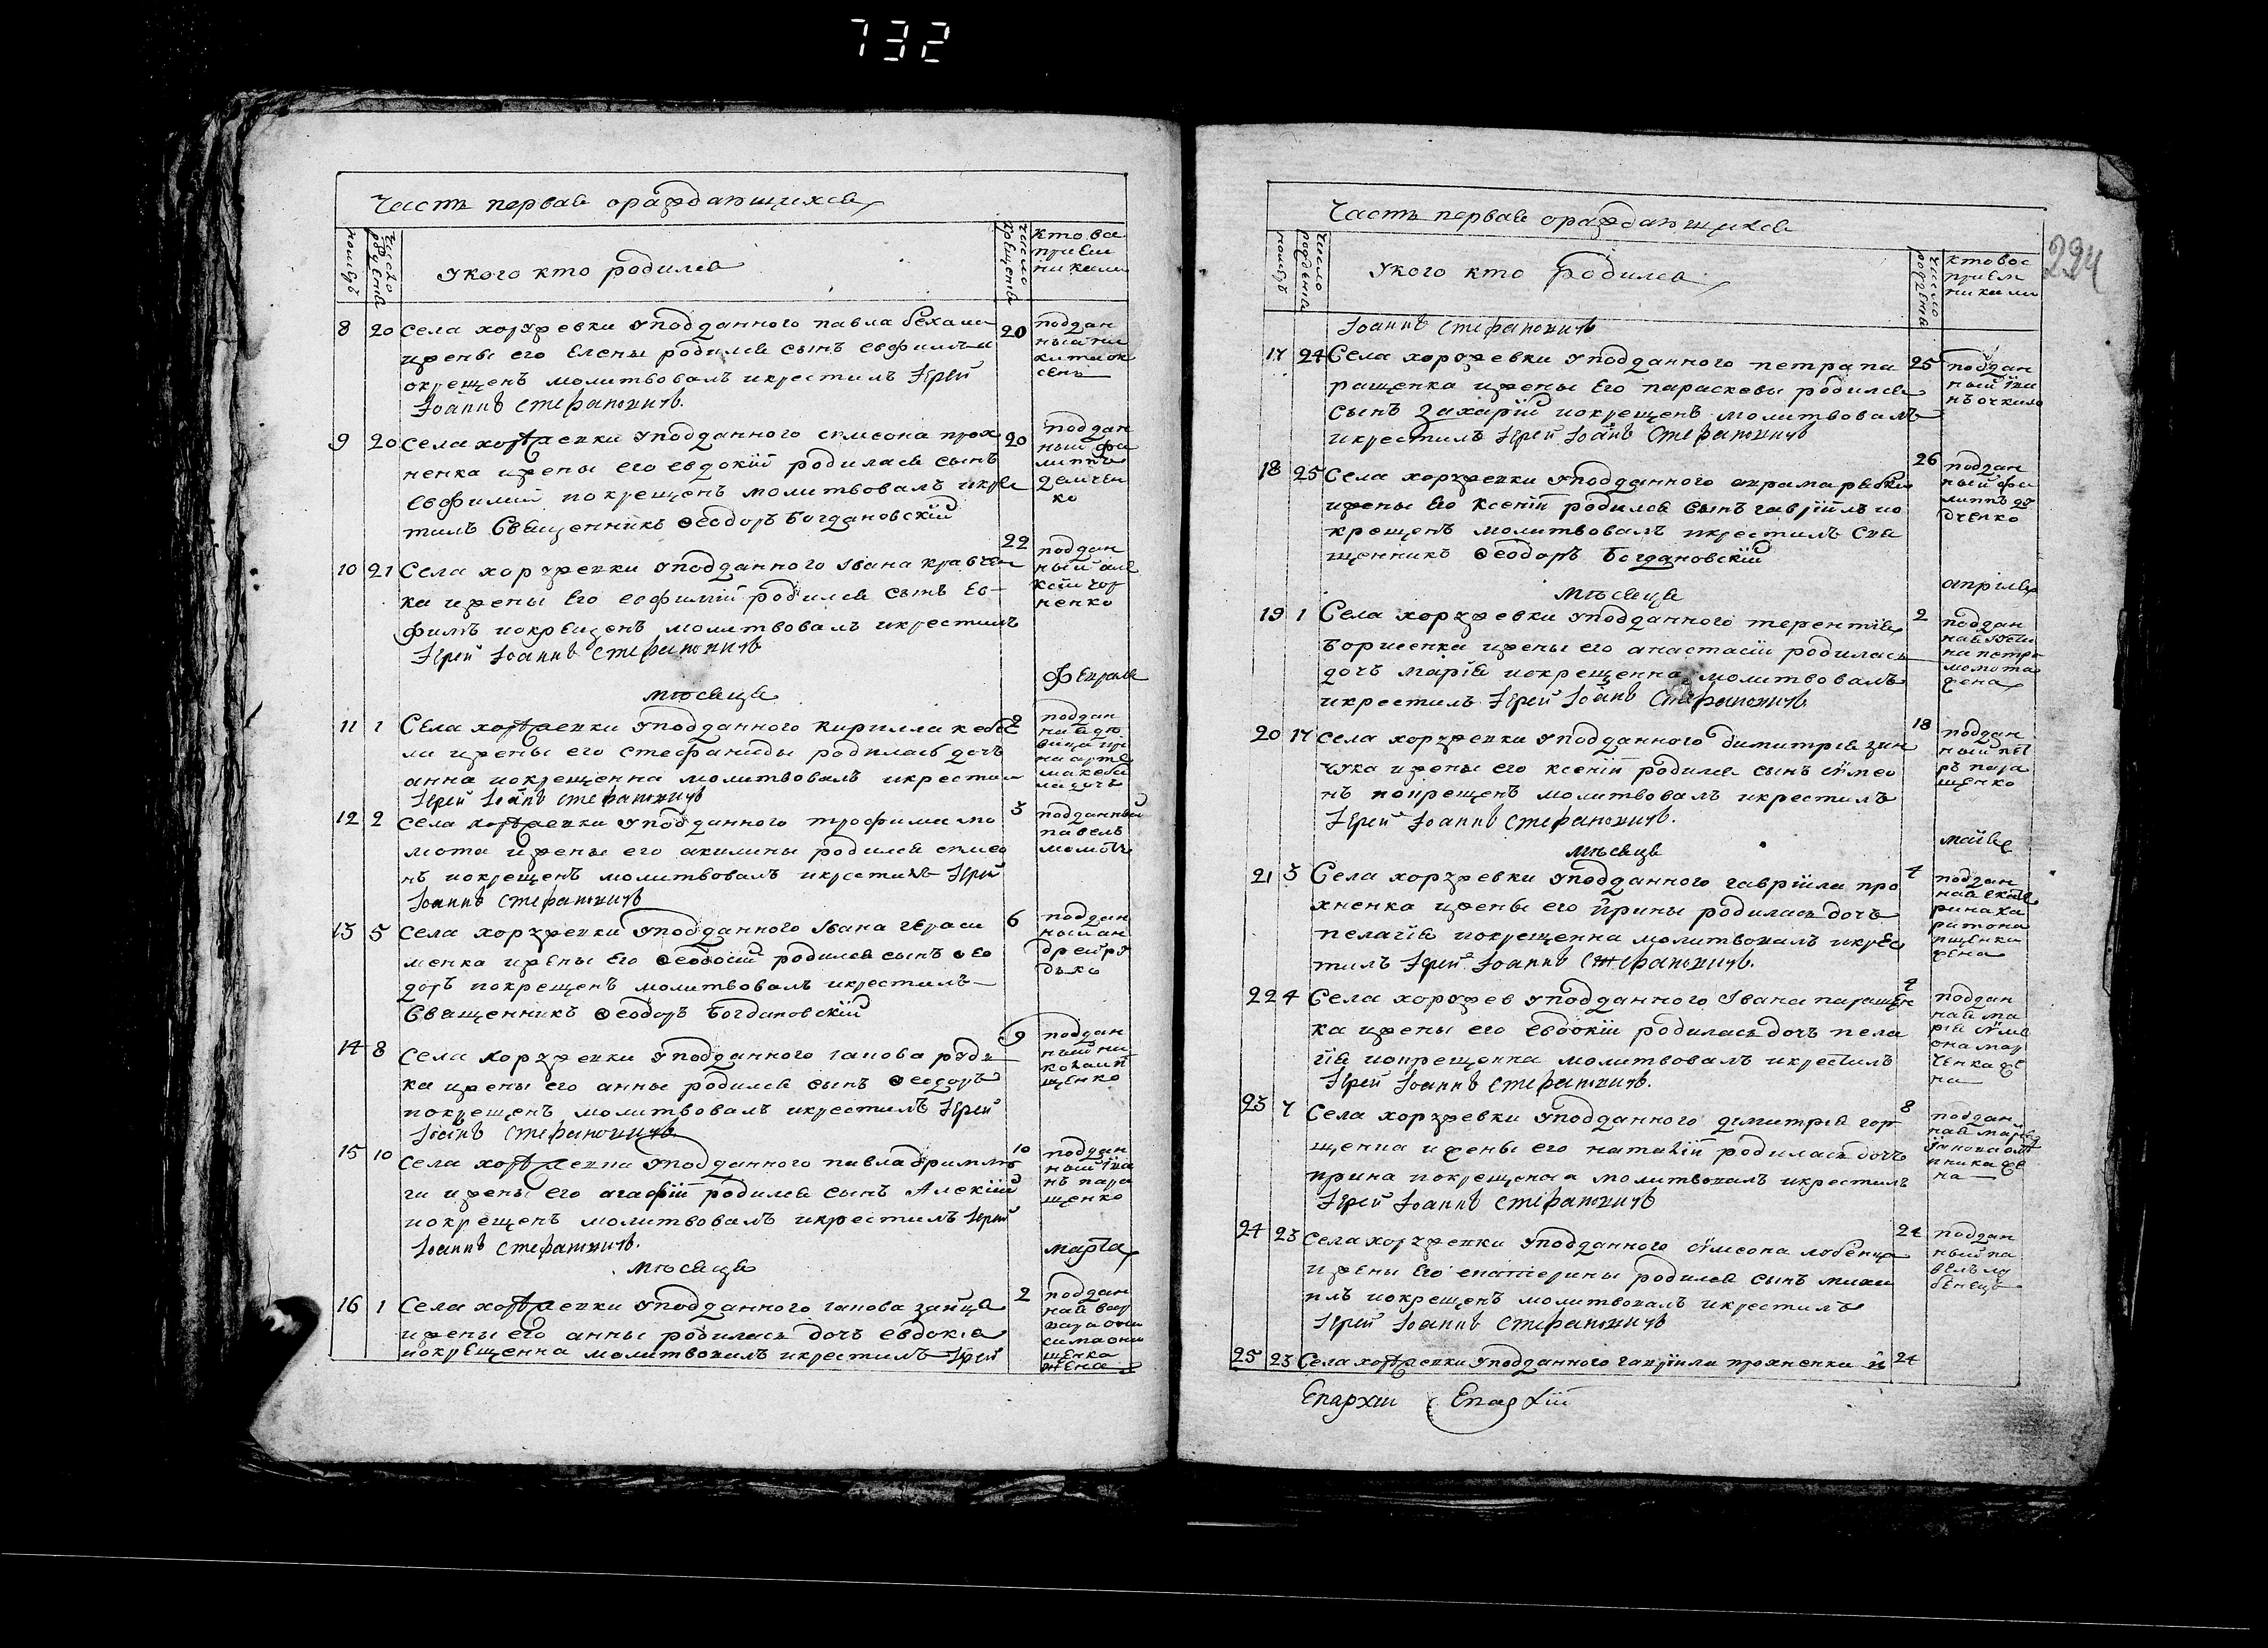 732
Часть первая ораждающихся
номѣръ
число рождения
У кого кто родился
число крещения
кто вос
прием
никами
8 20 Села хоружевки у подданного павла
и жены его Елены родился сынъ
и окрещенъ молитвовалъ и крестилъ Иерей
Иоаннъ Стефановичъ
20 поддан
ный ни
кита
9 20 Села хоружевки у подданного симеона прох
ненка и жены его евдокіи родился сынъ
Евфимий и окрещенъ молитвовалъ и крес
тилъ Священникъ Ѳеодоръ Богдановскій
20 поддан
ный фи
липпъ
ко
10 21 Села хоружевки у подданного Ивана кравчен
ка и жены его евфиміи родился сынъ Ев
фимъ и окрещенъ молитвовалъ и крестилъ
Иерей Иоаннъ Стефановичъ
22 поддан
ный але
ксей чор
ненко
Мѣсяца
Февраля
11 1 Села хоружевки у подданного Кирилла кебе
ли и жены его стефаниды родилась дочь
анна и окрещенна молитвовалъ и крестил
Иерей Иоаннъ Стефановичъ
2 поддан
ная дѣ
вица ири
на арте
ма кебе
ли дочь
12 2 Села хоружевки у подданного трофима мо
мота и жены его акилины родился симео
нъ и окрещенъ молитвовалъ и крестилъ Иерей
Иоаннъ Стефановичъ
3 подданный
павелъ
момотъ
13 5 Села хоружевки у подданного Ивана гераси
менка и жены его Ѳеодосіи родился сынъ Ѳео
доръ и окрещенъ молитвовалъ и крестилъ
Священникъ Ѳеодоръ Богдановскій
6 поддан
ный ан
дрей ру
дько
14 8 Села хоружевки у подданного іакова рудь
ка и жены его анны родился сынъ Ѳеодоръ
и окрещенъ молитвовалъ и крестилъ Иерей
Иоаннъ Стефановичъ
9 поддан
ный ни
щенко
15 10 Села хоружевки у подданного павла
ги и жены его агафіи родился сынъ Алексій
и окрещенъ молитвовалъ и крестилъ Иерей
Иоаннъ Стефановичъ
10 поддан
ный Ива
нъ пара
щенко
Мѣсяца
Марта
16 1 Села хоружевки у подданного іакова зайца
и жены его анны родилась дочь евдокіа
и окрещенна молитвовалъ и крестилъ Иерей
2 поддан
ная вар
вара они
сима они
щенка
жена
Часть первая ораждающихся
294
номѣръ
число рождения
У кого кто родился
число рождения
кто вос
прием
никами
Иоаннъ Стефановичъ
17 24 Села хоружевки у подданного петра па
ращенка и жены его параскевы родился
сынъ Захарій и окрещенъ молитвовалъ
и крестилъ Иерей Иоаннъ Стефановичъ
25 поддан
ный Ива
нъ очкало
18 25 Села хоружевки у подданного аврама рябки
и жены его Ксеніи родился сынъ гавріилъ и о
крещенъ молитвовалъ и крестилъ Свя
щенникъ Ѳеодоръ Богдановскій
26 поддан
ный фи
липпъ ді
дченко
Мѣсяца
априля
19 1 Села хоружевки у подданного терентіа
Борисенка и жены его анастасіи родилась
дочь маріа и окрещенна молитвовалъ
и крестилъ Иерей Иоаннъ Стефановичъ
2 поддан
ная
на петра
момота
жена
20 17 Села хоружевки у подданного димитрія зин
чука и жены его ксеніи родился сынъ сѵмео
нъ и окрещенъ молитвовалъ и крестилъ
Иерей Иоаннъ Стефановичъ
18 поддан
ный пет
ръ пара
щенко
Мѣсяца
маія
21 3 Села хоружевки у подданного гавріила про
хненка и жены его ирины родилась дочь
пелагіа и окрещенна молитвовалъ и крес
тилъ Иерей Иоаннъ Стефановичъ
4 поддан
ная екате
рина ха
ритона
ищенка
жена
22 4 Села хоружев у подданного Ивана паращен
ка и жены его Евдокіи родилась дочь пела
гіа и окрещенна молитвовалъ и крестилъ
Иерей Иоаннъ Стефановичъ
4 поддан
ная ма
рія сѵме
она мар
ченка же
на
23 7 Села хоружевки у подданного димитрія гор
щенка и жены его наталіи родилась дочь
ирина и окрещенна молитвовалъ и крестилъ
Иерей Иоаннъ Стефановичъ
8 поддан
ная маріа
іакова
ника же
на
24 23 Села хоружевки у подданного сѵмеона любенца
и жены его екатерины родился сынъ миха
илъ и окрещенъ молитвовалъ и крестилъ
Иерей Иоаннъ Стефановичъ
24 поддан
ный па
велъ лю
бенецъ
25 23 Села хоружевки у подданного гавріила прохненка и 24
Епархіи Епархіи